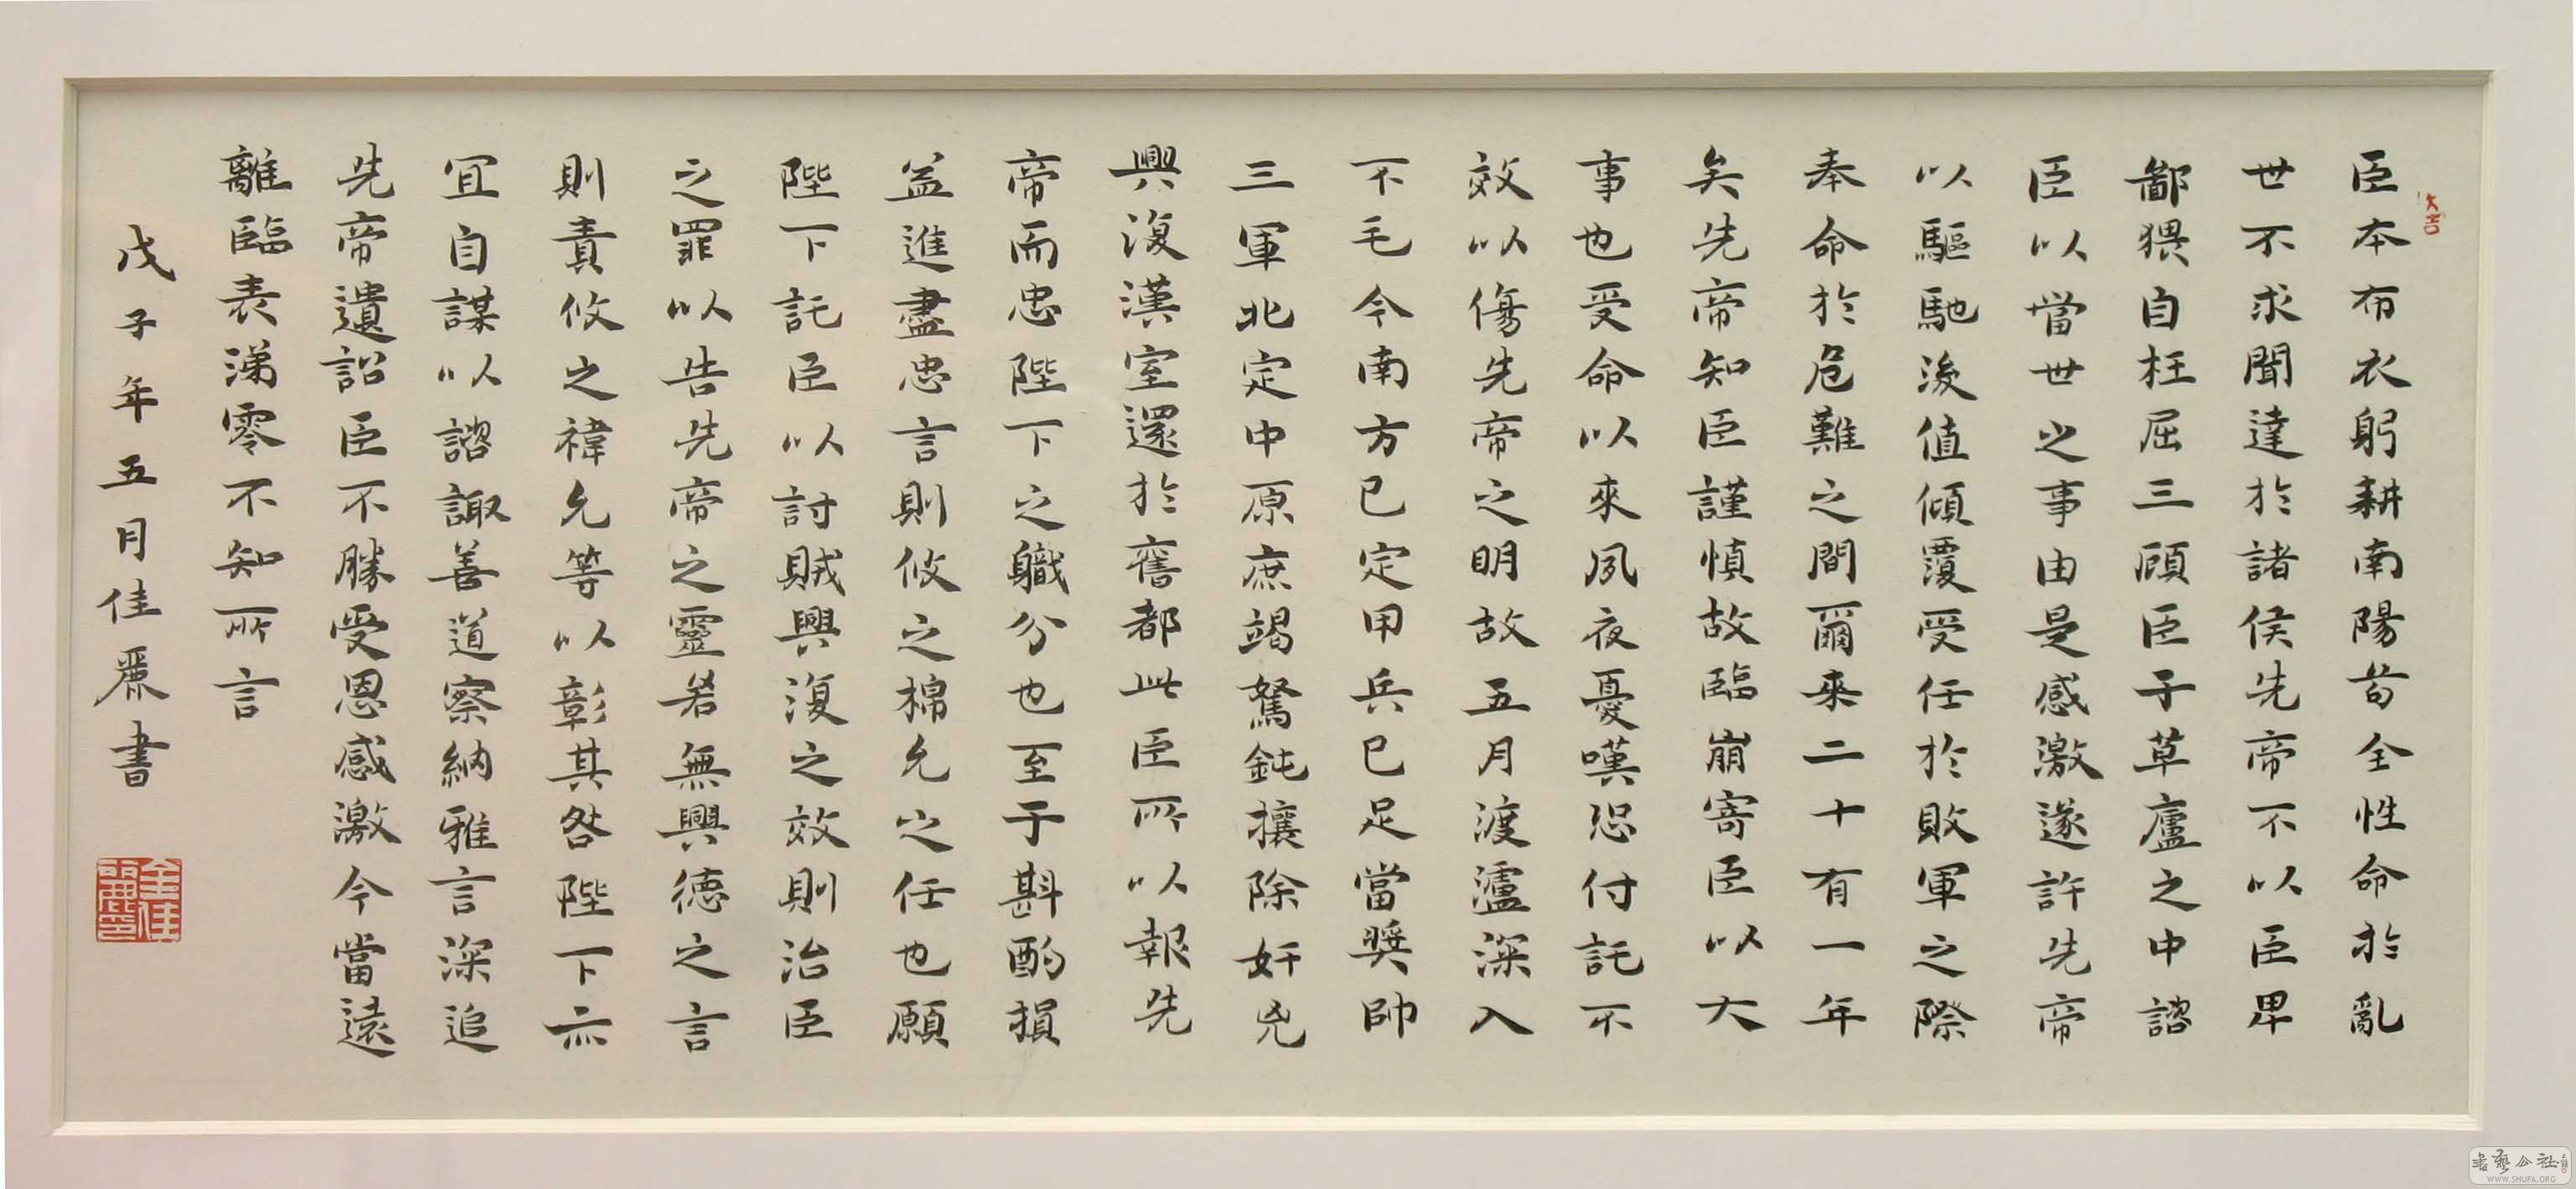 大吉
臣本布衣躬耕南陽苟全性命於亂
世不求聞達於諸侯先帝不以臣卑
鄙猥自枉屈三顧臣于草廬之中諮
臣以當世之事由是感激遂許先帝
以驅馳後值傾覆受任於敗軍之際
奉命於危難之間爾來二十有一年
矣先帝知臣謹慎故臨崩寄臣以大
事也受命以來夙夜憂嘆恐付託不
效以傷先帝之明故五月渡瀘深入
不毛今南方已定甲兵已足當奬帥
三軍北定中原庶竭駑鈍攘除奸兇
興復漢室還於舊都此臣所以報先
帝而忠陛下之職分也至于斟酌損
益進盡忠言則攸之棉允之任也願
陛下託臣以討賊興復之效則治臣
之罪以告先帝之靈若無興德之言
則責攸之禕允等以彰其咎陛下亦
宜自謀以諮諏善道察納雅言深追
先帝遺詔臣不勝受恩感激今當遠
離臨表涕零不知所言
戊子年五月佳麗書
金佳麗印
書藝公社
WWW.SHUFA.ORG